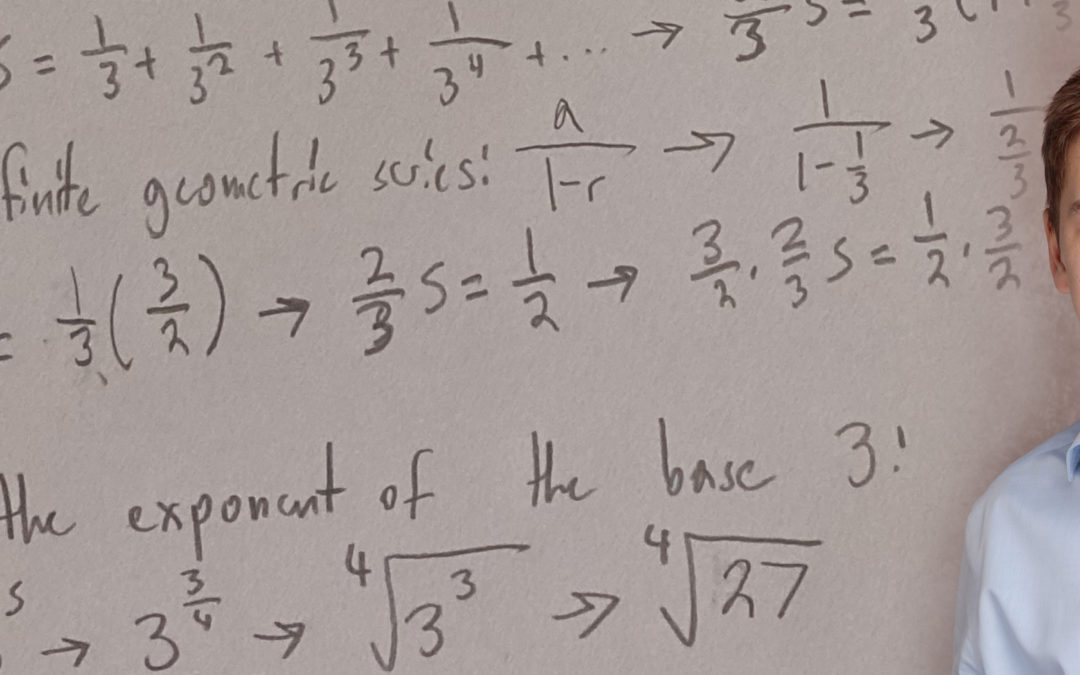 S = 1/3 + 1/3^2 + 1/3^3 + 1/3^4 + ... → /3 S = 3 (1
finite geometric series: a/(1-r) → 1/(1 - 1/3) → 1/(2/3)
= 1/3 (3/2) → 2/3 S = 1/2 → 3/2 · 2/3 S = 1/2 · 3/2
the exponent of the base 3!
s → 3^(3/4) → ⁴√(3^3) → ⁴√27